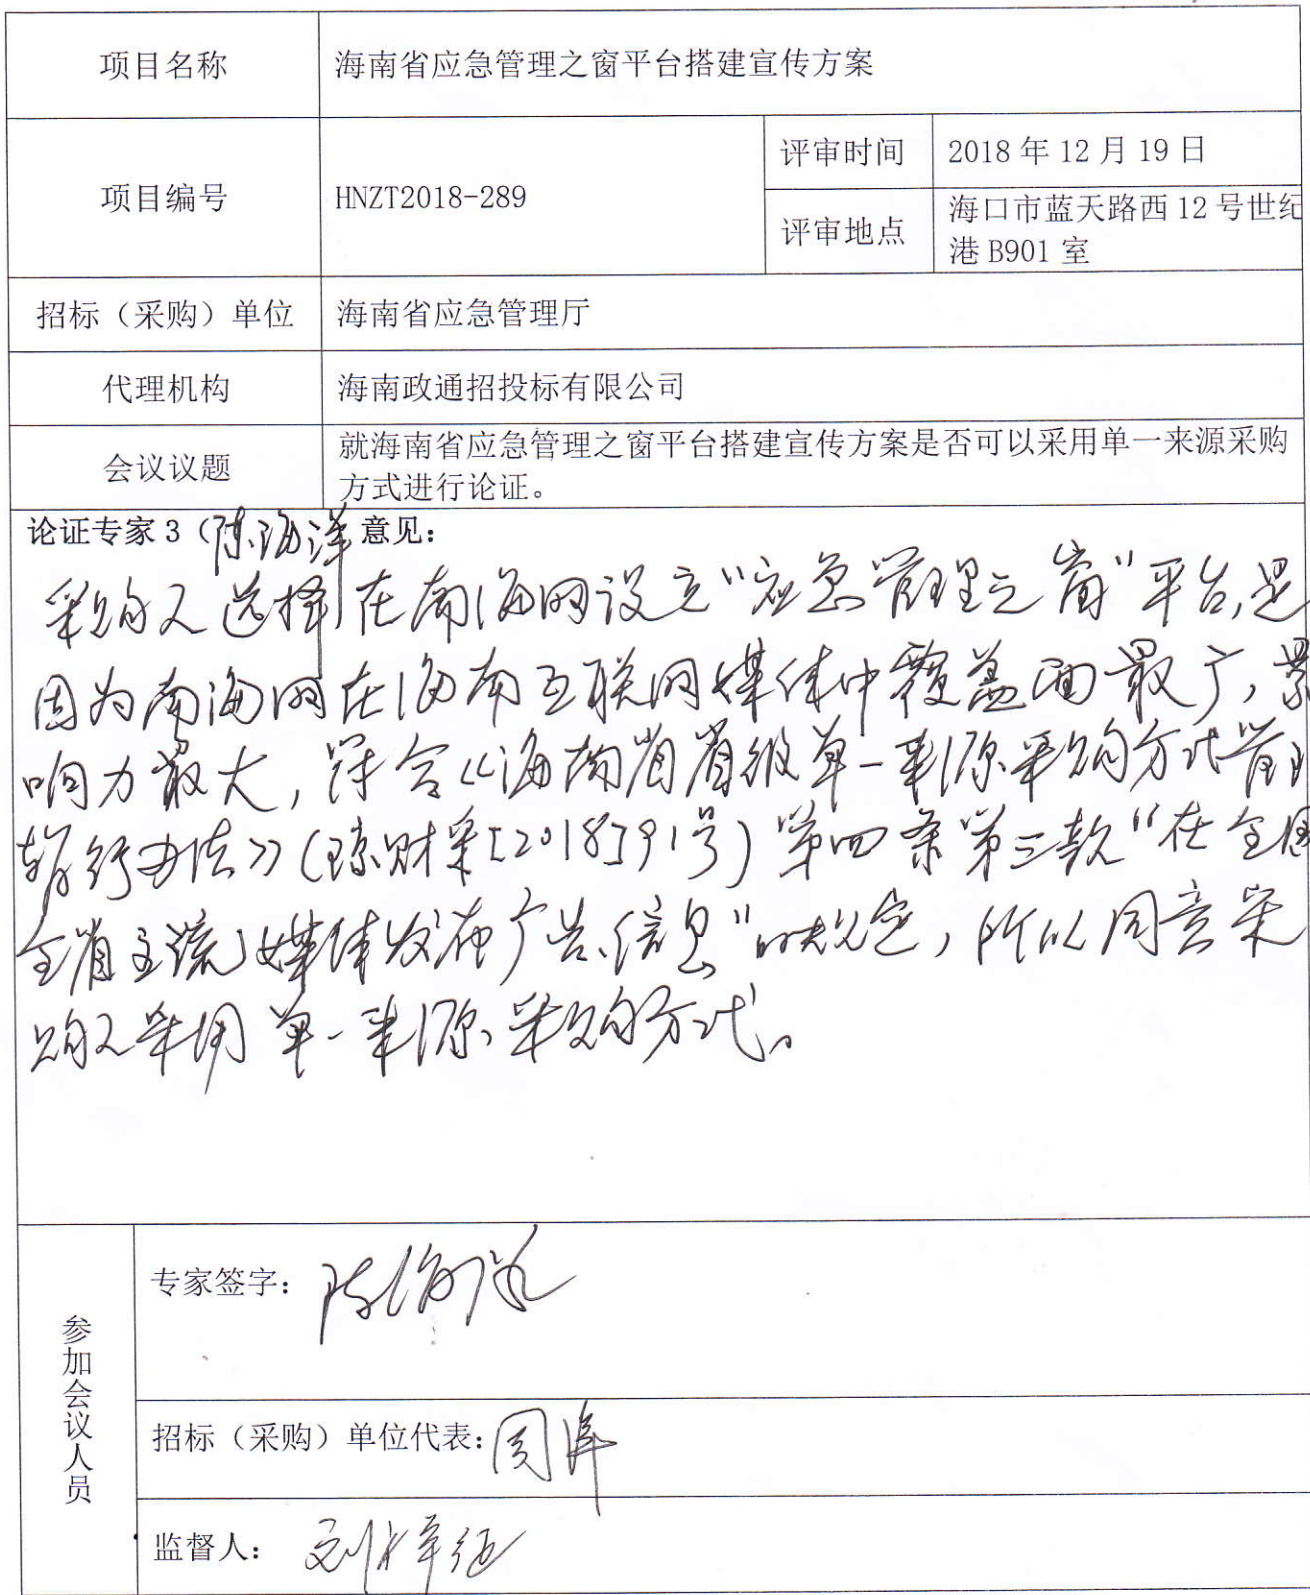 项目名称
海南省应急管理之窗平台搭建宣传方案
项目编号
HNZT2018-289
评审时间
2018年12月19日
评审地点
海口市蓝天路西12号世纪
港B901室
招标（采购）单位
海南省应急管理厅
代理机构
海南政通招投标有限公司
会议议题
就海南省应急管理之窗平台搭建宣传方案是否可以采用单一来源采购
方式进行论证。
论证专家3（陈海洋 意见：
采购人选择在南海网设立“应急管理之窗”平台,是
因为南海网在海南互联网媒体中覆盖面最广,影
响力最大,符合《海南省省级单一来源采购方式管理
暂行办法》(琼财采[2018]791号)第四条第三款“在全国
全省主流媒体发布广告、信息”的规定,所以同意采
购人采用单一来源采购方式。
参加会议人员
专家签字：陈海洋
招标（采购）单位代表：周
监督人：刘